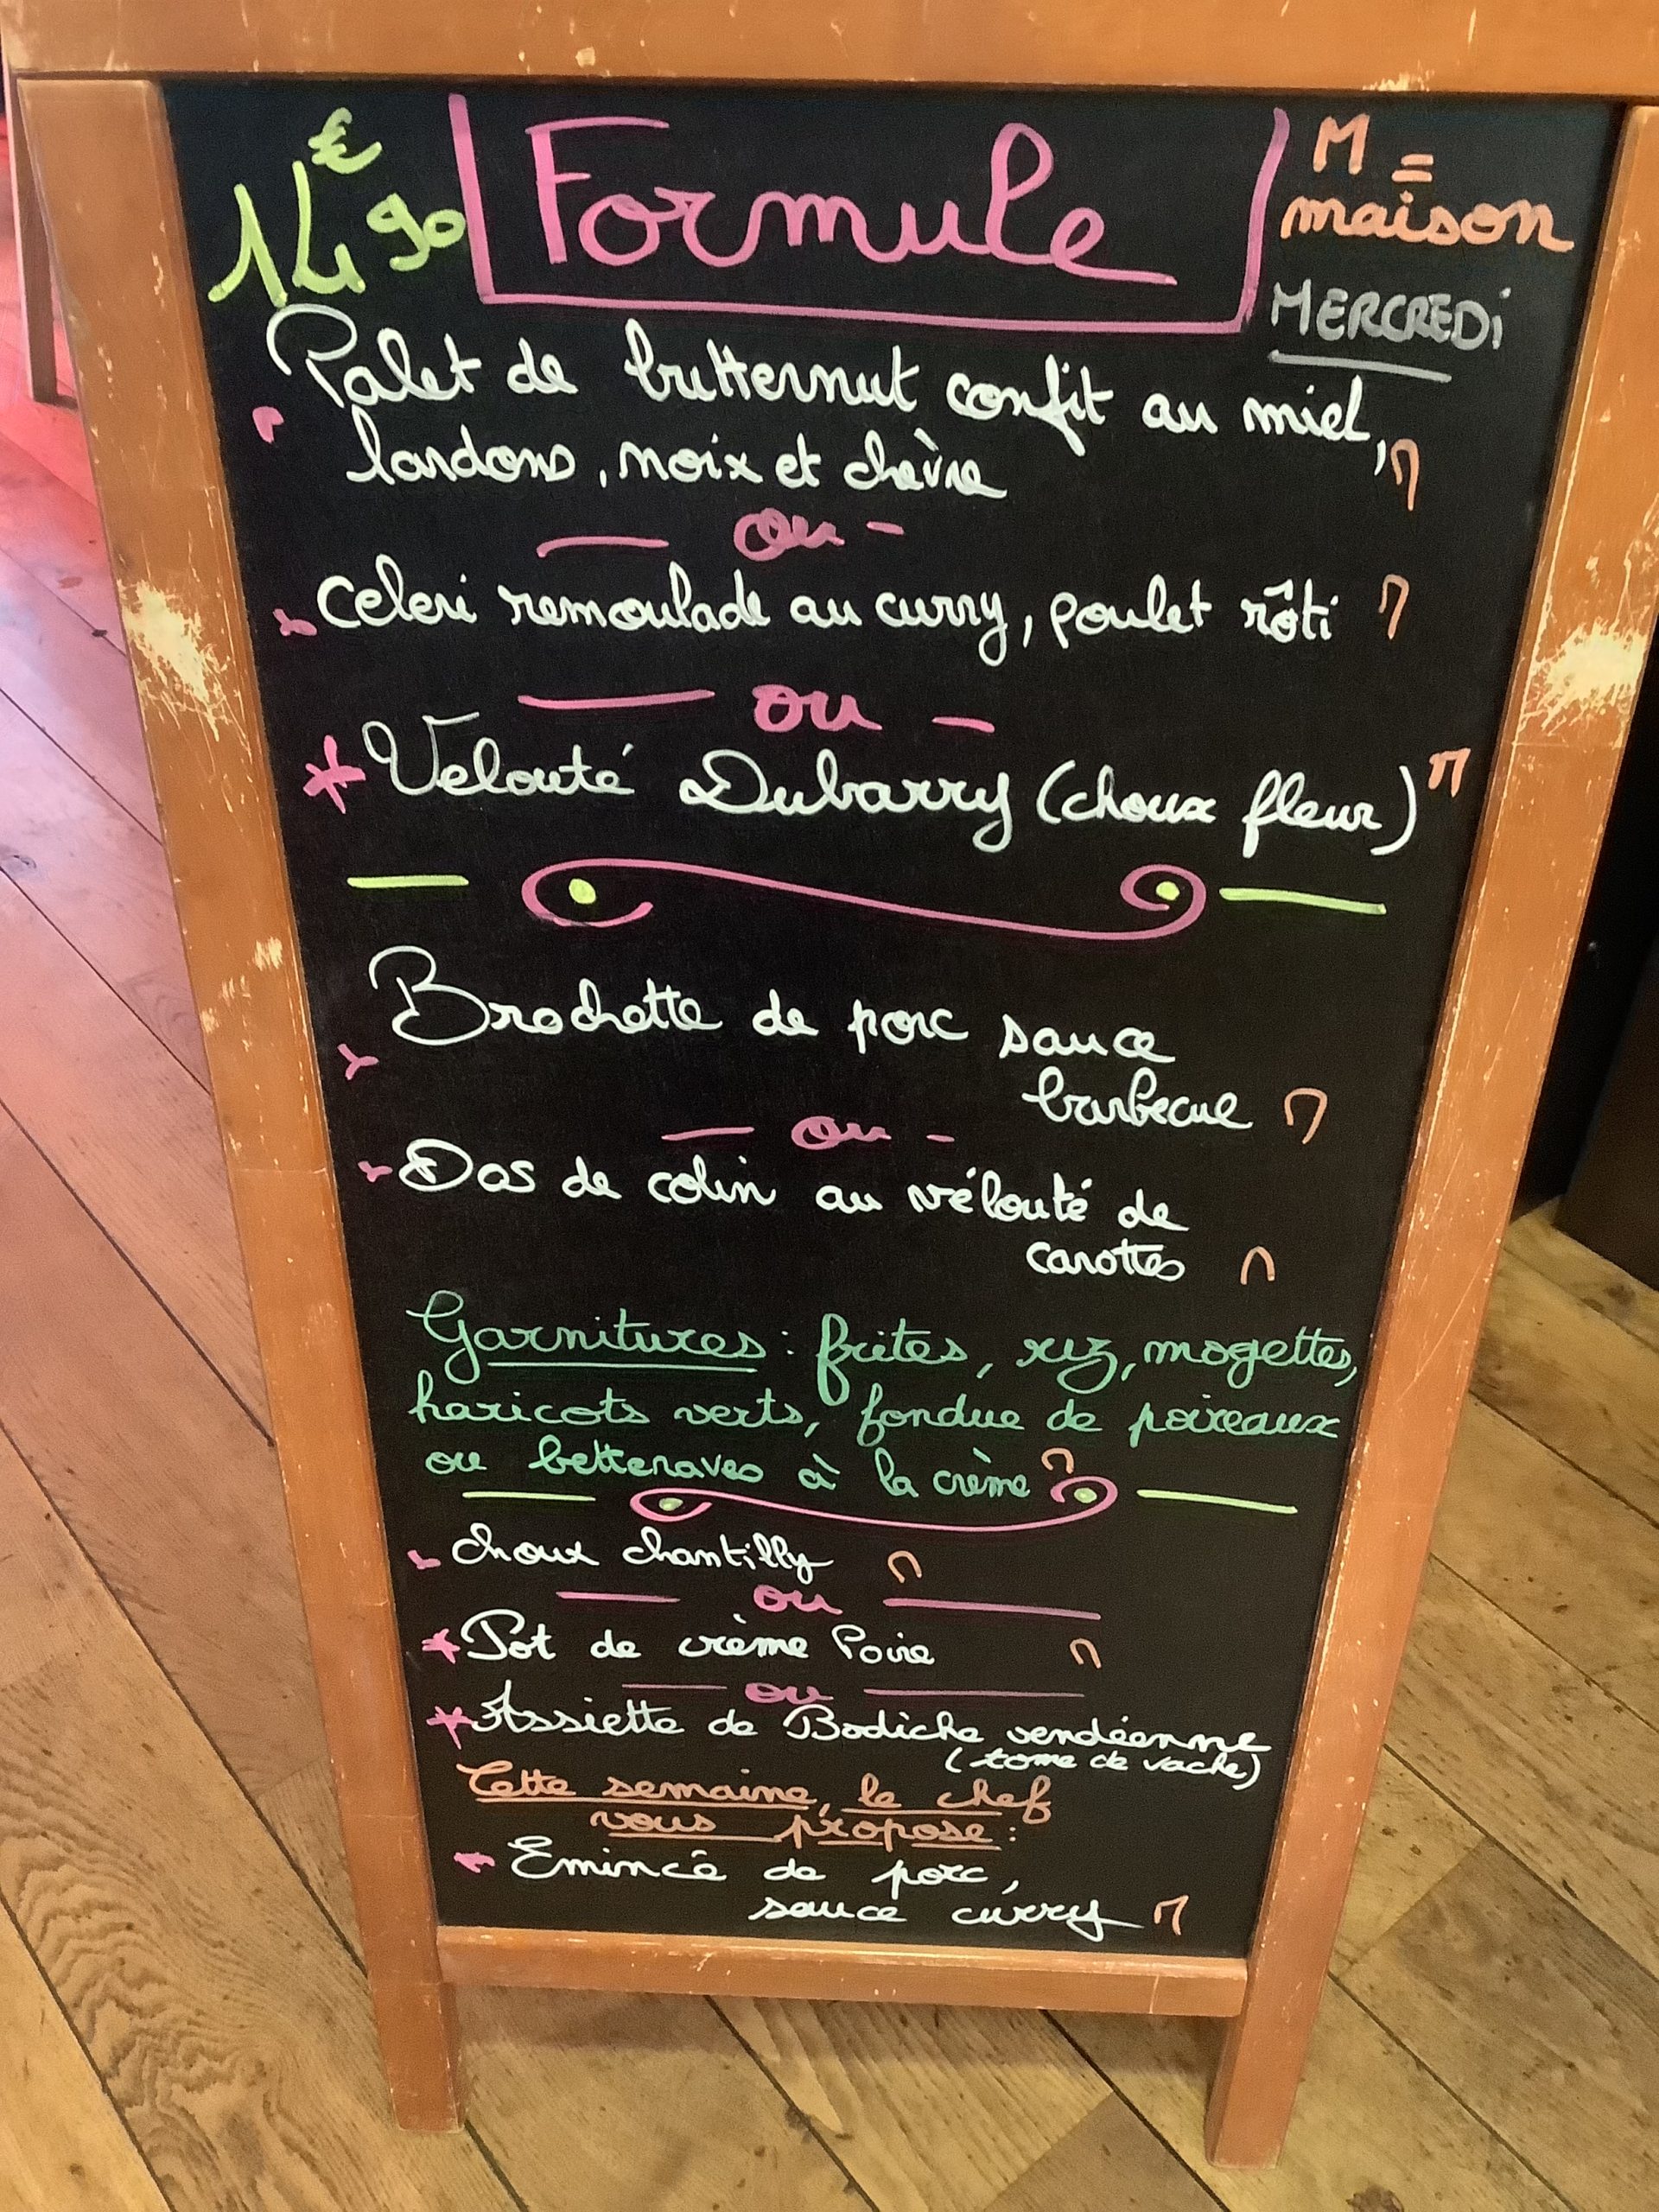 14€90 Formule M = maison
MERCREDi
Palet de butternut confit au miel,
lardons, noix et chèvre M
— ou -
Celeri remoulade au curry, poulet rôti M
— ou —
* Velouté Dubarry (choux fleur) M
Brochette de porc sauce
barbecue M
— ou -
Dos de colin au vélouté de
carottes M
Garnitures : frites, riz, mogettes,
haricots verts, fondue de poireaux
ou betteraves à la crème M
choux chantilly M
— ou —
* Pot de crème Poire M
— ou —
* Assiette de Bodiche vendéenne
(tome de vache)
Cette semaine, le chef
vous propose :
* Emincé de porc,
sauce curry M